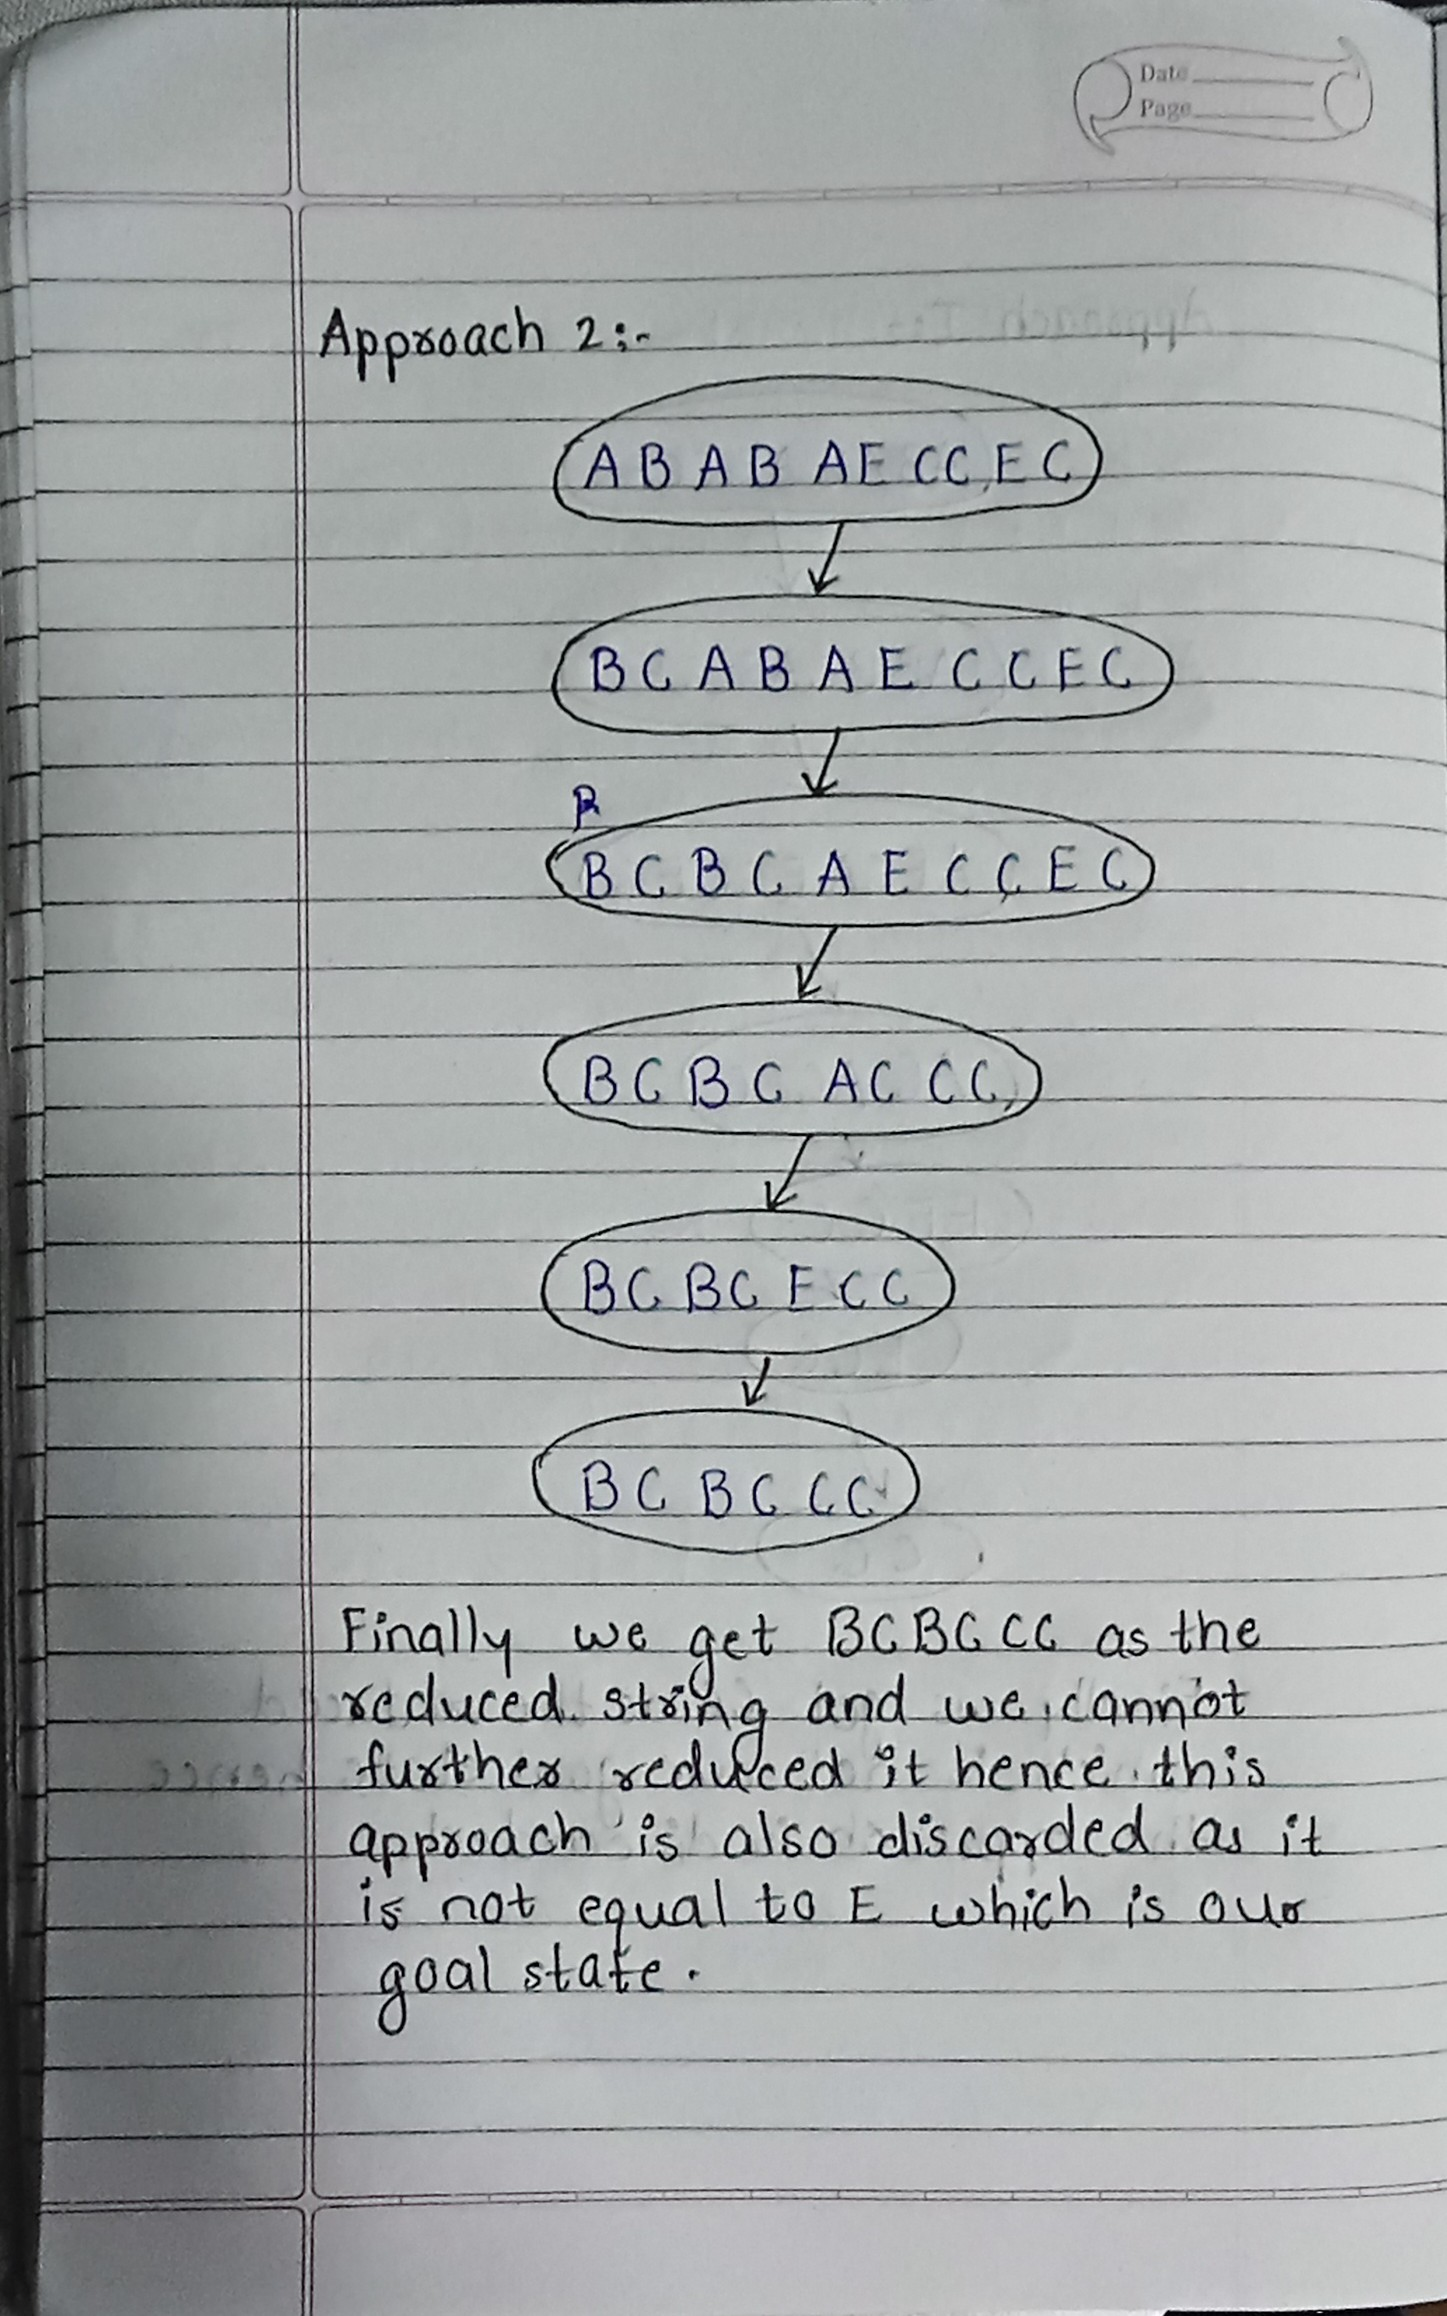 Date
Page
Approach 2:-
A B A B A E C C E C
B C A B A E C C E C
B
B C B C A E C C E C
B C B C A C C C
B C B C E C C
B C B C C C
Finally we get BCBCCC as the
reduced string and we cannot
further reduced it hence this
approach is also discarded as it
is not equal to E which is our
goal state.